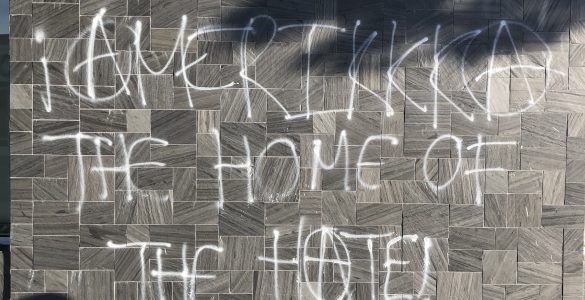 ¡AMERIKKKA
THE HOME OF
THE HATE!